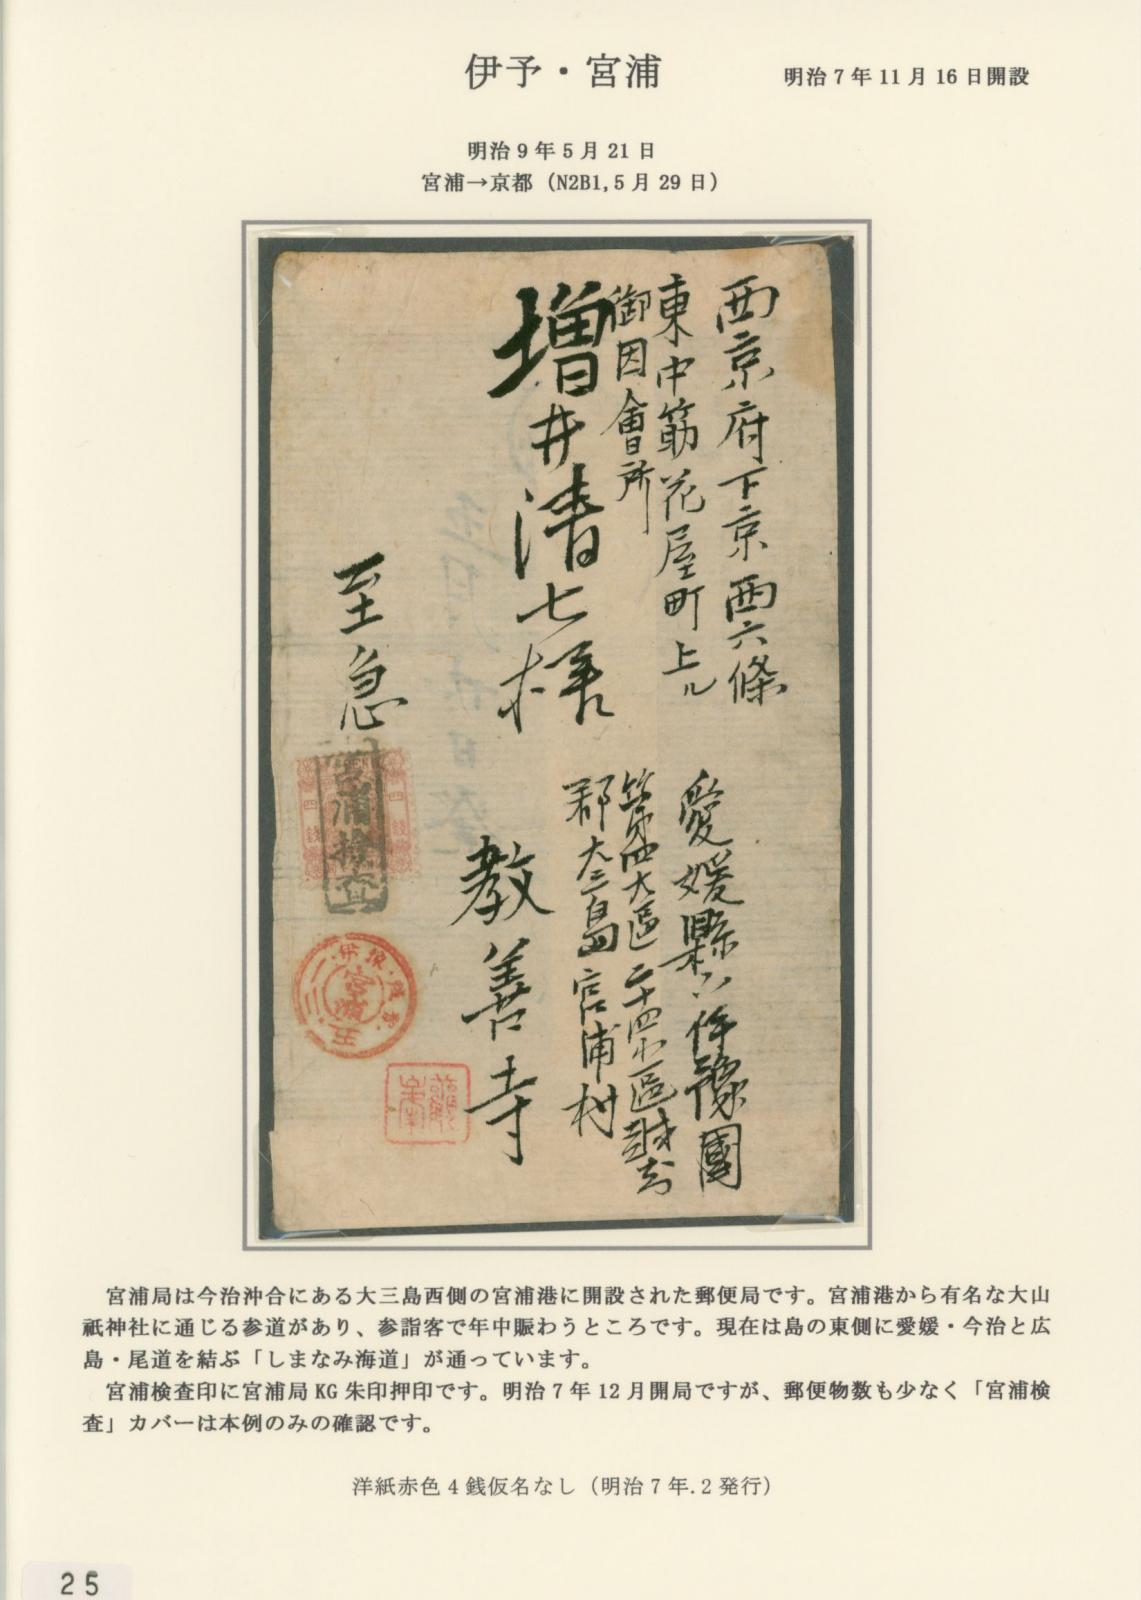 伊予・宮浦
明治7年11月16日開設
明治9年5月21日
宮浦→京都（N2B1,5月29日）
西京府下京西六條
東中筋花屋町上ル
御因會所
増井清七様
愛媛縣下伊豫國
第四大區二十四小區越智
郡大三島宮浦村
教善寺
至急
宮浦検査
四錢
宮浦局は今治沖合にある大三島西側の宮浦港に開設された郵便局です。宮浦港から有名な大山
祇神社に通じる参道があり、参詣客で年中賑わうところです。現在は島の東側に愛媛・今治と広
島・尾道を結ぶ「しまなみ海道」が通っています。
宮浦検査印に宮浦局KG朱印押印です。明治7年12月開局ですが、郵便物数も少なく「宮浦検
査」カバーは本例のみの確認です。
洋紙赤色4銭仮名なし（明治7年.2発行）
25